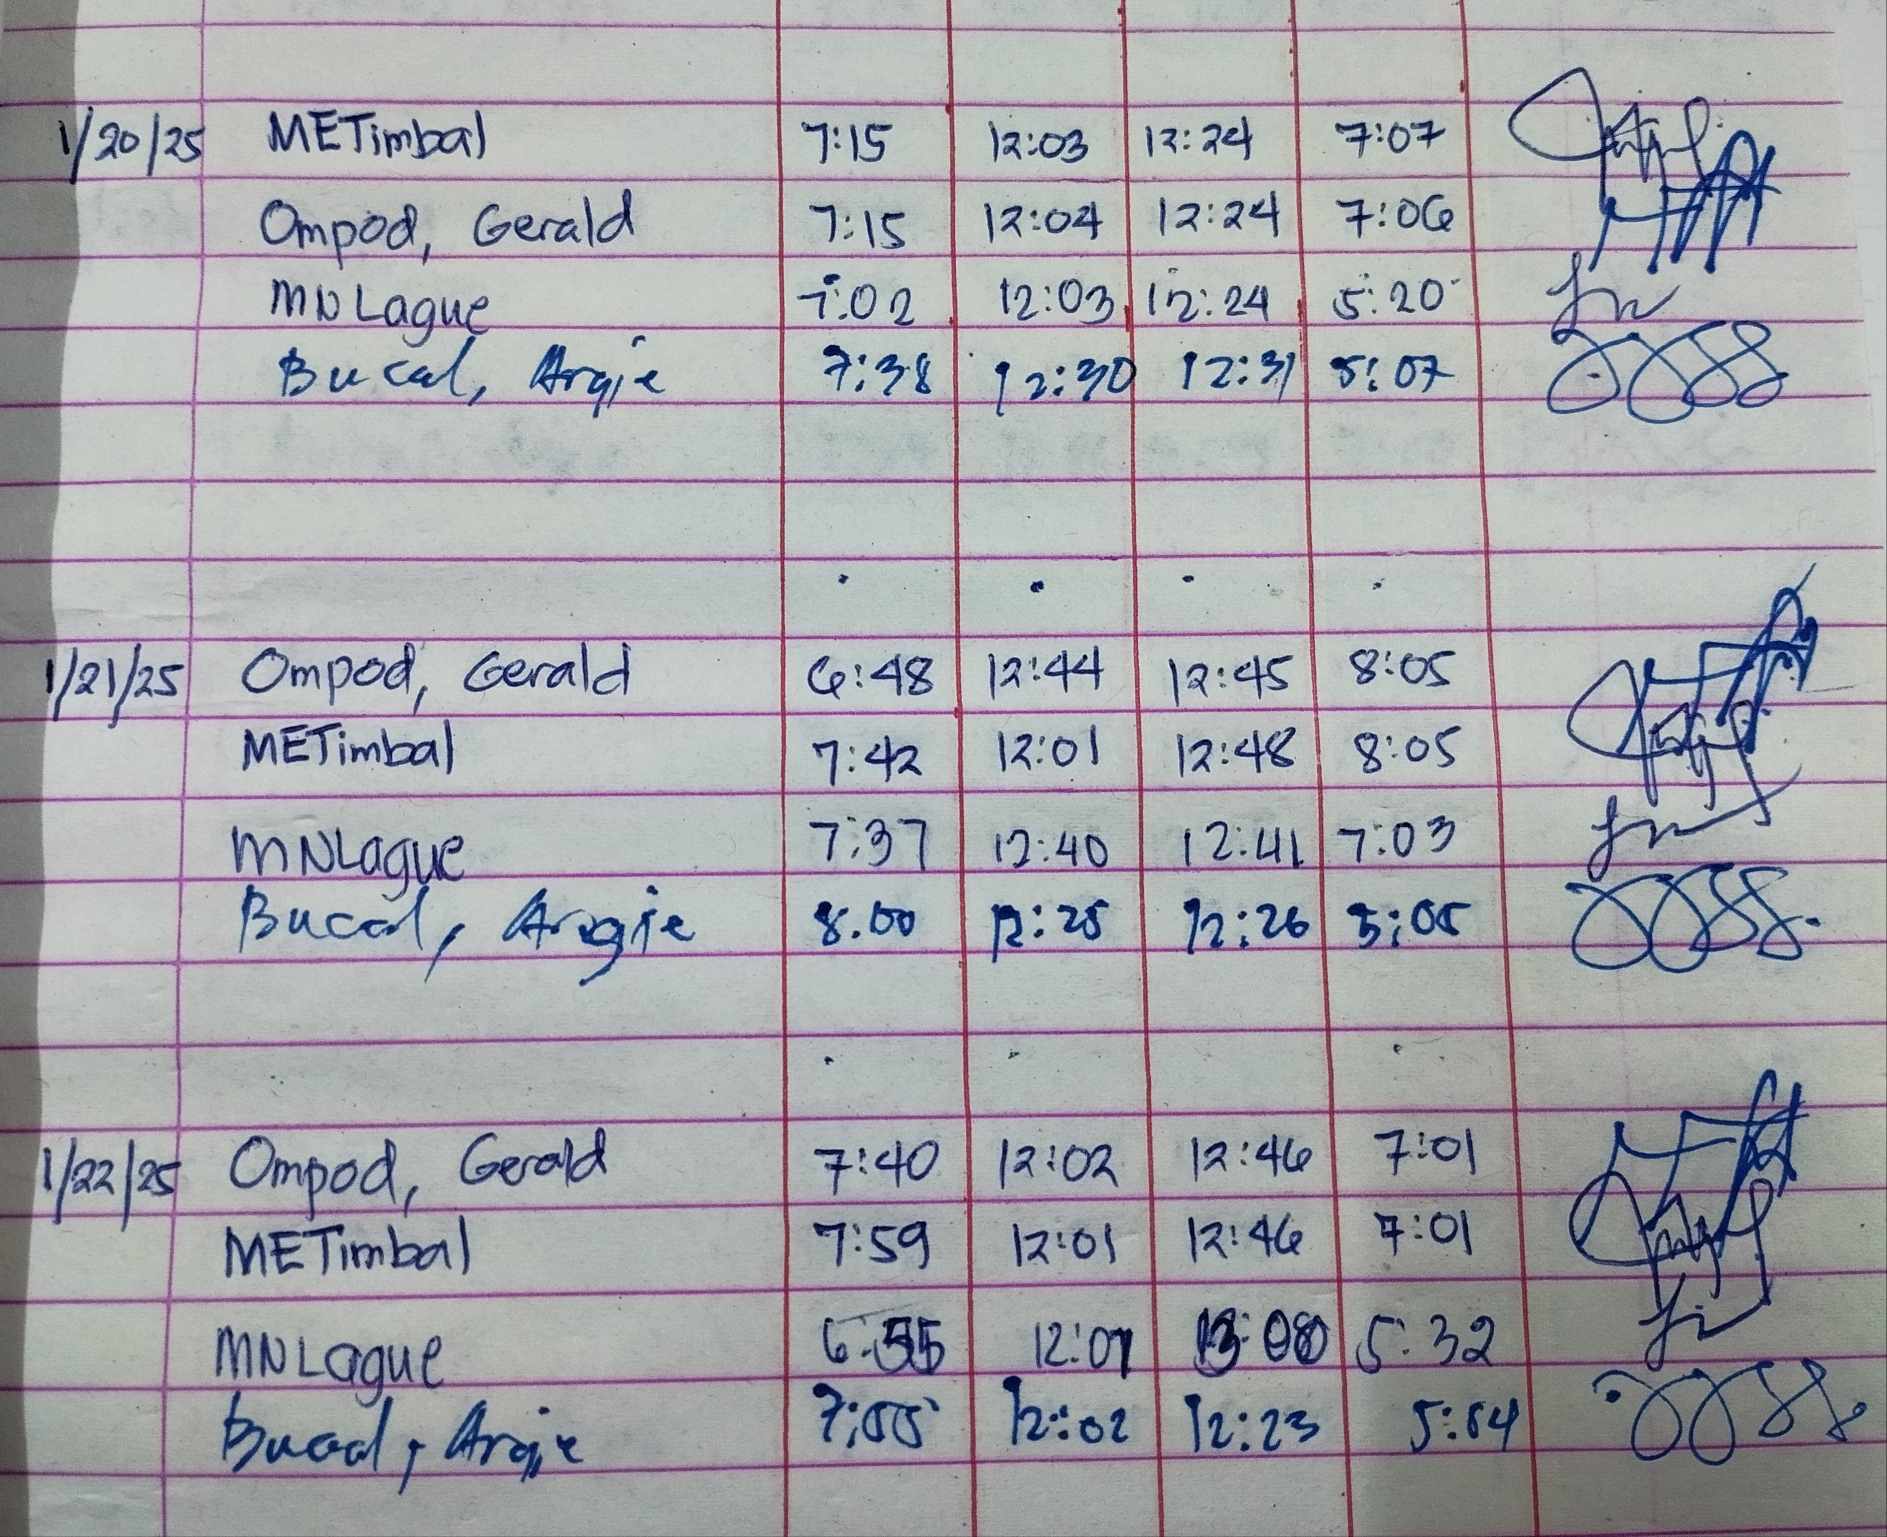 1/20/25 METimbal 7:15 12:03 12:24 7:07
Ompod, Gerald 7:15 12:04 12:24 7:06
MNLague 7:02 12:03 12:24 5:20
Bucal, Argie 7:38 12:30 12:31 5:07
1/21/25 Ompod, Gerald 6:48 12:44 12:45 8:05
METimbal 7:42 12:01 12:48 8:05
MNLague 7:37 12:40 12:41 7:03
Bucal, Argie 8:00 12:25 12:26 5:05
1/22/25 Ompod, Gerald 7:40 12:02 12:46 7:01
METimbal 7:59 12:01 12:46 7:01
MNLague 12:07 5:32
Bucal, Argie 12:02 12:23 5:04